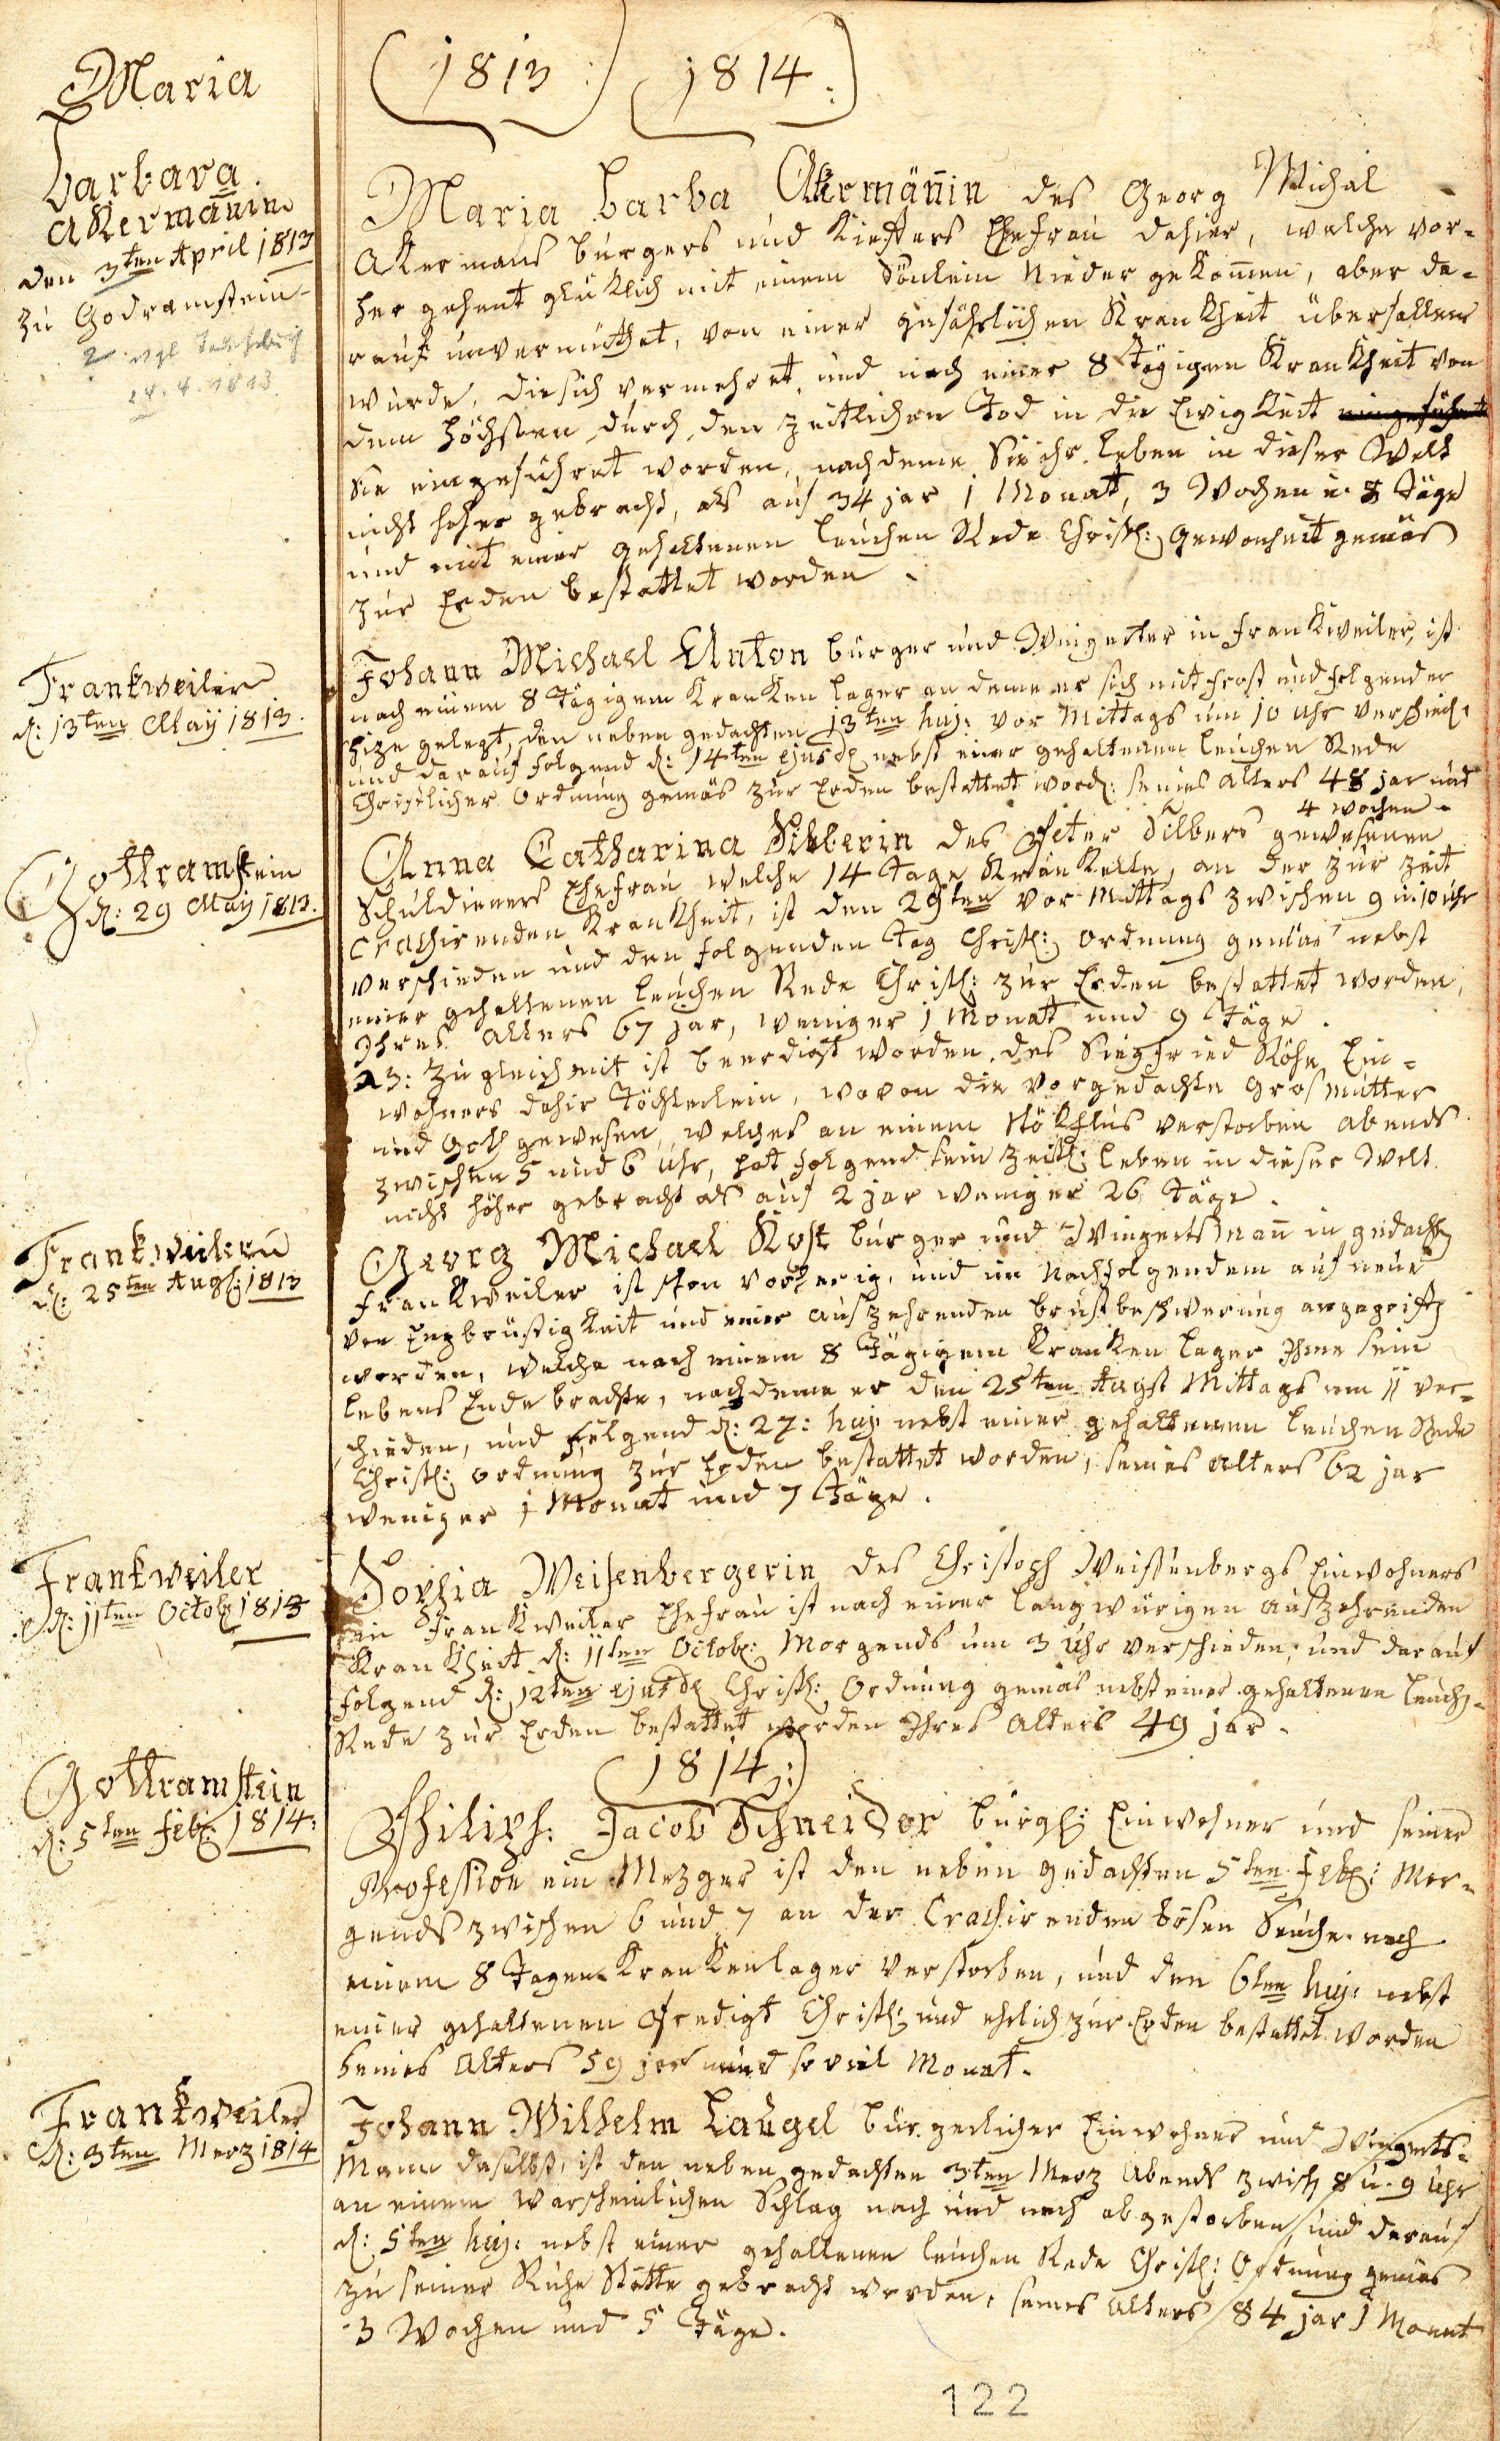 (1813:) (1814:)
Maria
Barbara
Akermännin
den 3ten April 1813
zu Godramstein
24. 4. 1813
Maria Barba Akermänin des Georg Michal
Akermans burgers und Kieffers Ehefrau dahier, welche vor-
her gehent glüklich mit einem Sönlein Nieder gekomen, aber da-
rauf unvermuthet, von einer gefährlichen Krankheit überfallen
wurde, die sich vermehret, und nach einer 8 Tägigen Krankheit von
dem höchsten durch den zeitlichen Tod in die Ewigkeit eingeführet
sie eingeführet worden, nachdeme Sie ihr leben in dieser Welt
nicht höher gebracht, als auf 34 jar 1 Monat, 3 Wochen u. 8 Täge
und mit einer gehaltenen leuchen Rede Christl: gewonheit gemäs
zur Erden bestattet worden.
Frankweiler
d: 13ten May 1813.
Johann Michael Anton burger und Wingerter in frankweiler, ist
nach einem 8 Tägigem Kranken lager an deme er sich mit frost und folgender
hize gelegt, den neben gedachten 13ten huj: vor Mittags um 10 uhr verschied:
und darauf folgend d: 14ten ejusd nebst einer gehaltenen leuchen Rede
Christlicher Ordnung gemäs zur Erden bestattet word: seines alters 48 jar und
4 wochen.
Gottramstein
d: 29 May 1813.
Anna Catharina Silberin des Peter Silbers gewesenen
Schuldieners Ehefrau welche 14 Tage Kränkelte, an der zur zeit
crassirenden Krankheit, ist den 29ten vor Mittags zwischen 9 u: 10 uhr
verschieden und den folgenden Tag Christl: ordnung gemäs nebst
einer gehaltenen leuchen Rede Christl: zur Erden bestattet worden,
Ihres alters 67 jar, weniger 1 Monat und 9 Täge.
NB: zugleich mit ist beerdigt worden, des Siegfried Röhn Ein-
wohners dahir Töchterlein, wovon die vorgedachte grosmutter
und Goth gewesen, welches an einem stökflus verstorben abends
zwischen 5 und 6 uhr, hat folgend sein zeitl: leben in dieser Welt
nicht höher gebracht als auf 2 jar weniger 26 Täge.
Frankweilern
d: 25ten Augst: 1813
Georg Michael Kost burger und Wingertsman in gedacht
frankweiler ist schon vorherig, und im Nachfolgendem auf neue
von Engbrüstigkeit und einer auszehrenden brustbeschwerung angegriff
worden, welche nach einem 8 Tägigem Kranken lager Ihme sein
lebens Ende brachte, nachdeme er den 25ten Augst Mittags um 11 ver-
schieden, und folgend d: 27: huj: nebst einer gehaltenen leuchen Rede
Christl: ordnung zur Erden bestattet worden, seines alters 62 jar
weniger 1 Monat und 7 Täge.
Frankweiler
d: 11ten Octob 1813
Sophia Weisenbergerin des Christoph Weissenbergs Einwohners
in Frankweiler Ehefrau ist nach einer langwürigen auszehrenden
Krankheit d: 11ten Octob: Morgends um 3 Uhr verschieden, und darauf
folgend d: 12ten ejusd Christl: Ordnung gemäs nebst einer gehaltenen leuch-
Rede zur Erden bestattet worden Ihres Alters 49 jar.
(1814:)
Gottramstein
d: 5ten Feb: 1814:
Philiph: Jacob Schneider burgl: Einwohner und seiner
Profession ein Mezger ist den neben gedachten 5ten Feb: Mor-
gends zwischen 6 und 7 an der Crassirenden bösen Seuche nach
einem 8 Tagen Krankenlager verstorben, und den 6ten huj: nebst
einer gehaltenen Predigt Christl: und ehrlich zur Erden bestattet worden
seines Alters 59 jar und so viel Monat.
Frankweiler
d: 3ten Merz 1814
Johann Wilhelm Laugel burgerlicher Einwohner und Wingerts-
Mann daselbst, ist den neben gedachten 3ten Merz Abends zwisch 8 u. 9 Uhr
an einem warscheinlichen Schlag nach und nach abgestorben und darauf
d: 5ten huj: nebst einer gehaltenen leuchen Rede Christl: Ordnung gemäs
zu seiner Ruhe Stätte gebracht worden, seines Alters 84 jar 1 Monat
3 Wochen und 5 Täge.
122